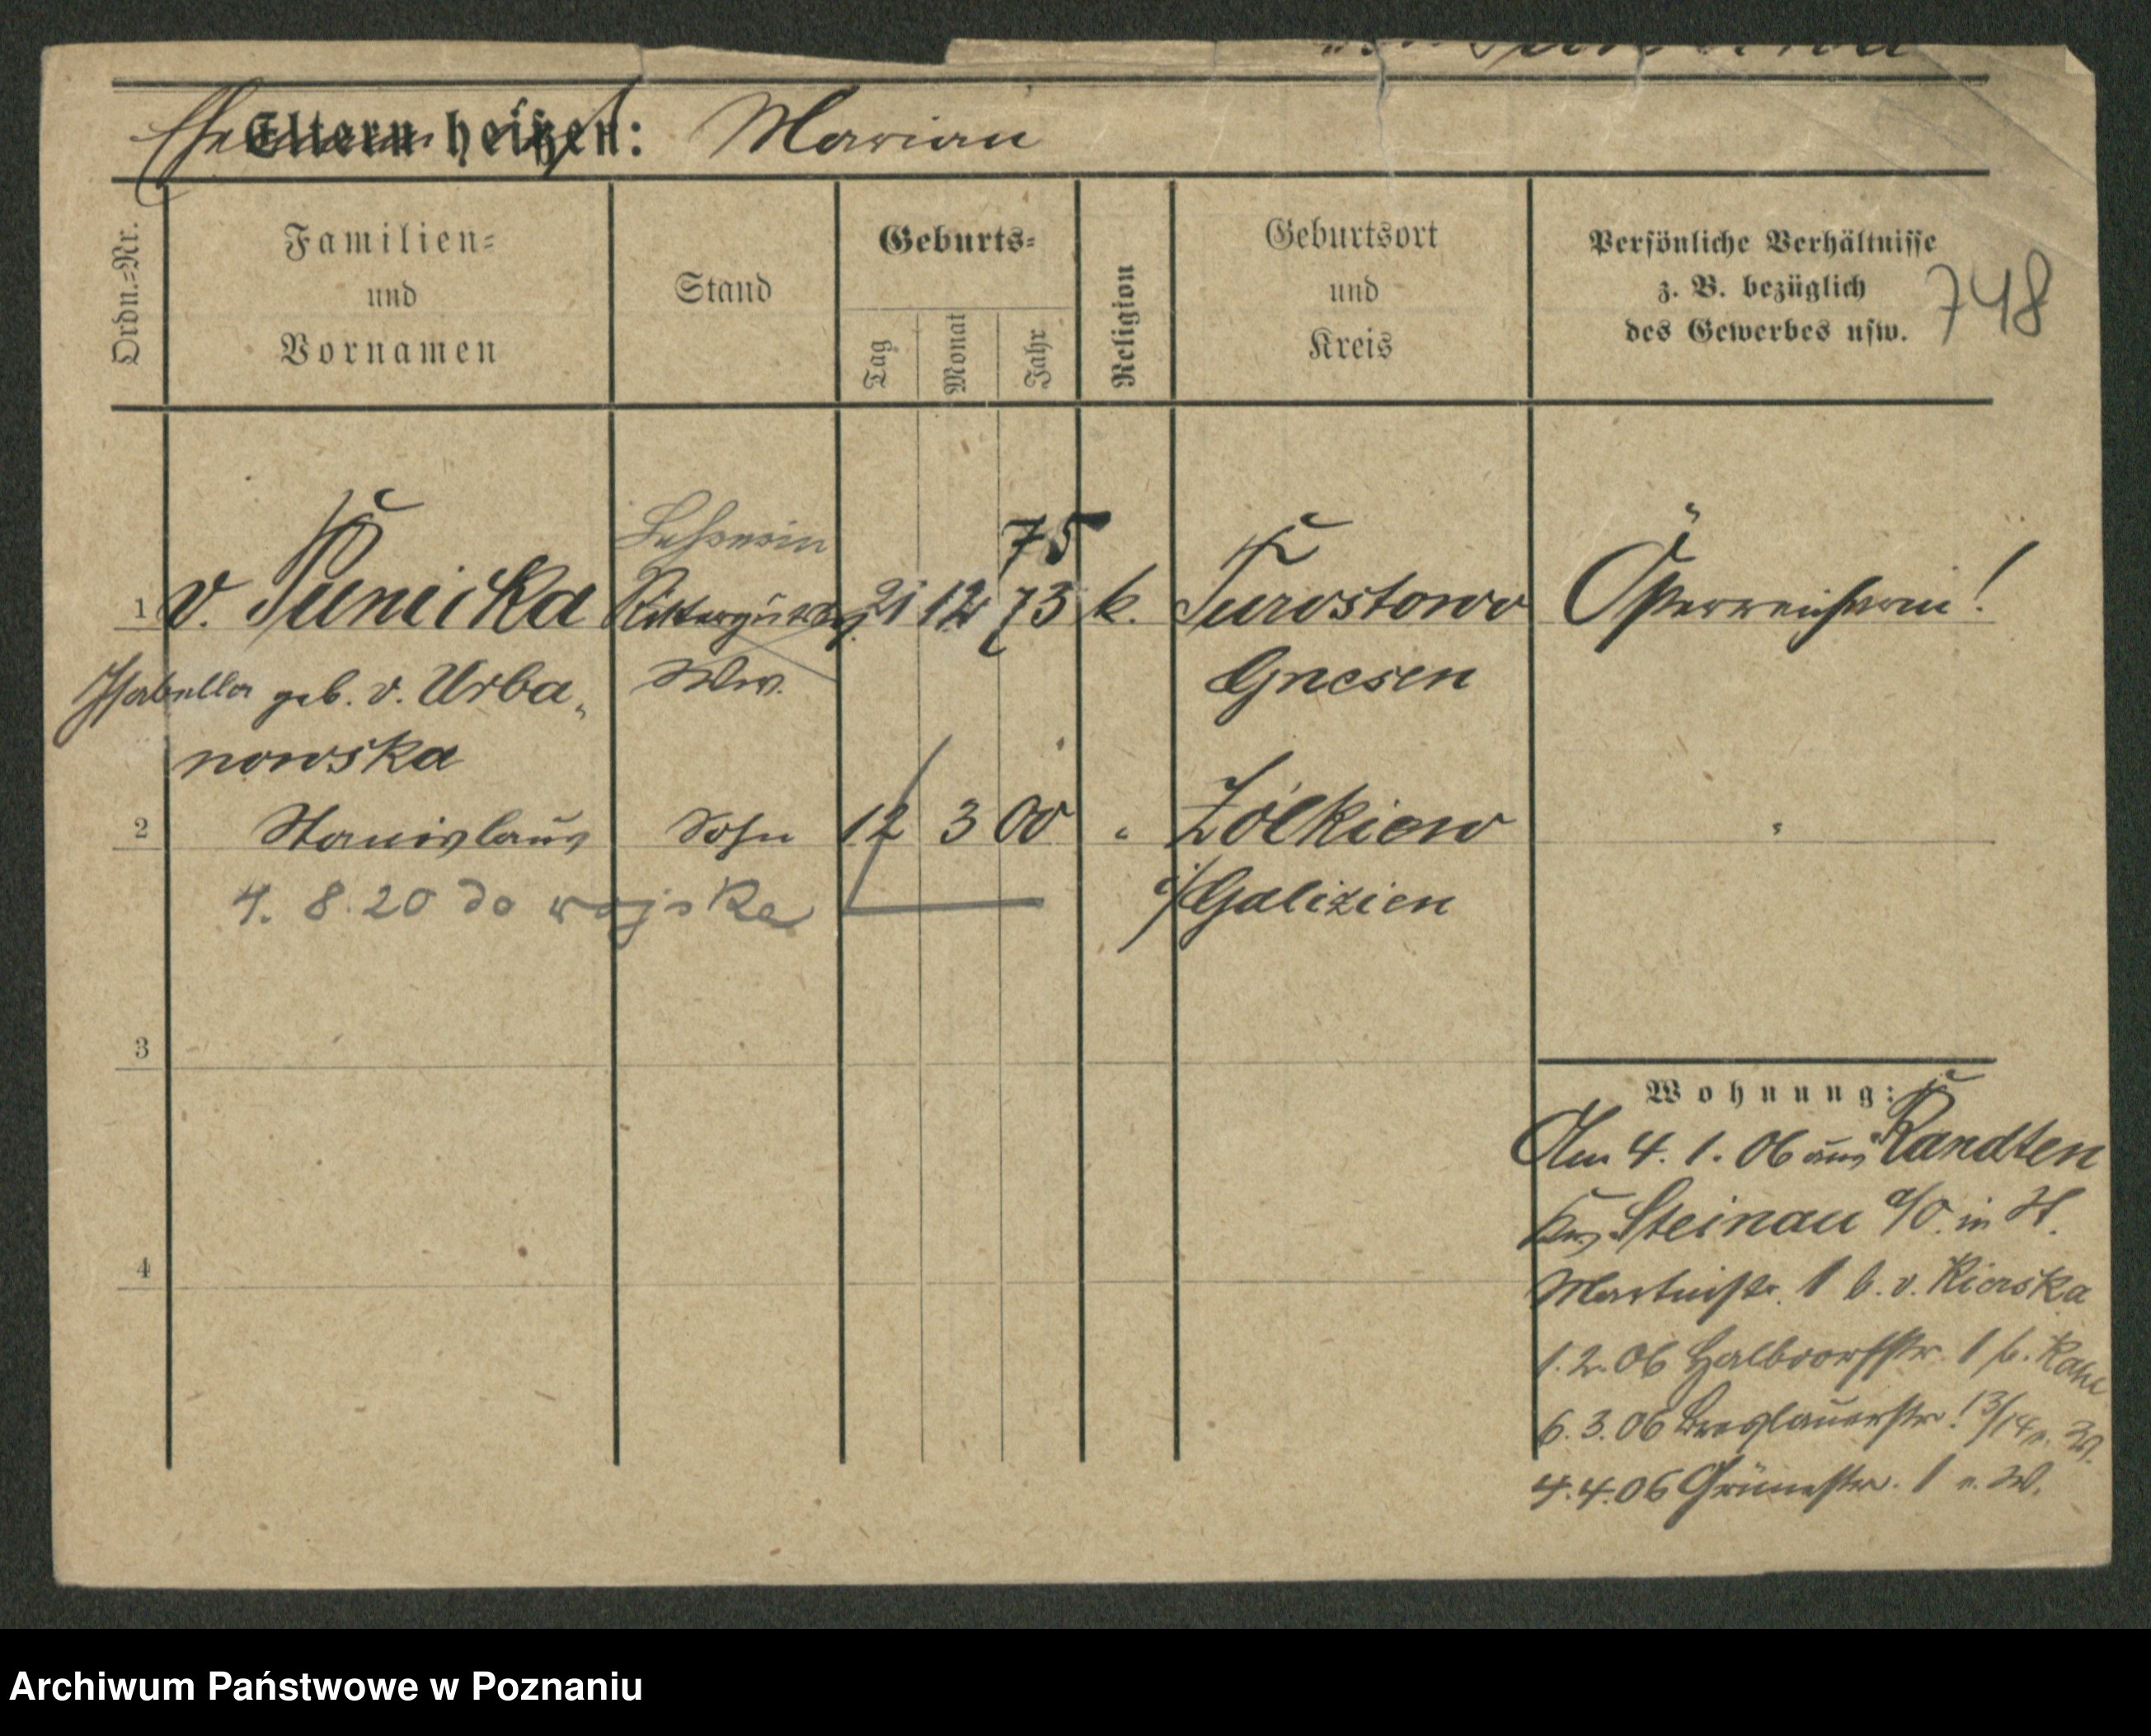 Eltern heißen: Marian
Ordn.=Nr.
Familien=
und
Vornamen
Stand
Geburts=
Tag
Monat
Jahr
Religion
Geburtsort
und
Kreis
Persönliche Verhältnisse
z. B. bezüglich
des Gewerbes usw.
748
75
1 v. Tunicka 21 12 73 k. Turostowo Österreicherin!
Isabella geb. v. Urba„ Ww. Gnesen
nowska
2 Stanislaus Sohn 12 3 00 " Zólkiew "
4. 8. 20 do wojska Galizien
3
Wohnung:
Am 4. 1. 06 aus Randten
Krs Steinau a/O. in St.
4
Martinstr. 1 b. v. Kierska
1. 2. 06 Halbdorfstr. 1 b.
6. 3. 06 Breslauerstr. 13/14 e. W.
4. 4. 06 Grünestr. 1 e. W.
Archiwum Państwowe w Poznaniu